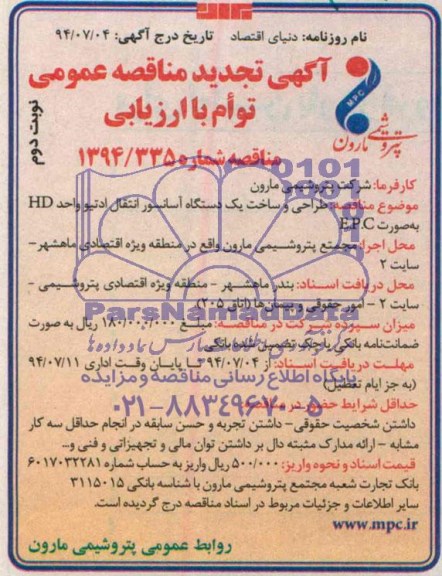 نام روزنامه: دنیای اقتصاد تاریخ درج آگهی: ۹۴/۰۷/۰۴
آگهی تجدید مناقصه عمومی
توأم با ارزیابی
نوبت دوم
MPC
پتروشیمی مارون
مناقصه شماره ۱۳۹۴/۳۳۵
کارفرما: شرکت پتروشیمی مارون
موضوع مناقصه: طراحی و ساخت یک دستگاه آسانسور انتقال ادتیو واحد HD
به‌صورت E.P.C
محل اجرا: مجتمع پتروشیمی مارون واقع در منطقه ویژه اقتصادی ماهشهر -
سایت ۲
محل دریافت اسناد: بندر ماهشهر - منطقه ویژه اقتصادی پتروشیمی -
سایت ۲ - امور حقوقی و پیمان‌ها (اتاق ۲۰۵)
میزان سپرده شرکت در مناقصه: مبلغ ۱۸۰/۰۰۰/۰۰۰ ریال به صورت
ضمانت‌نامه بانکی یا چک تضمین شده بانکی
مهلت دریافت اسناد: از ۹۴/۰۷/۰۴ تا پایان وقت اداری ۹۴/۰۷/۱۱
(به جز ایام تعطیل)
حداقل شرایط حضور در مناقصه:
داشتن شخصیت حقوقی - داشتن تجربه و حسن سابقه در انجام حداقل سه کار
مشابه - ارائه مدارک مثبته دال بر داشتن توان مالی و تجهیزاتی و فنی و...
قیمت اسناد و نحوه واریز: ۵۰۰/۰۰۰ ریال واریز به حساب شماره ۶۰۱۷۰۳۲۲۸۱
بانک تجارت شعبه مجتمع پتروشیمی مارون با شناسه بانکی ۳۱۱۵۰۱۵
سایر اطلاعات و جزئیات مربوط در اسناد مناقصه درج گردیده است.
www.mpc.ir
روابط عمومی پتروشیمی مارون
ParsNamadData
پایگاه اطلاع رسانی مناقصه و مزایده
۰۲۱-۸۸۳۴۹۶۷۰-۵